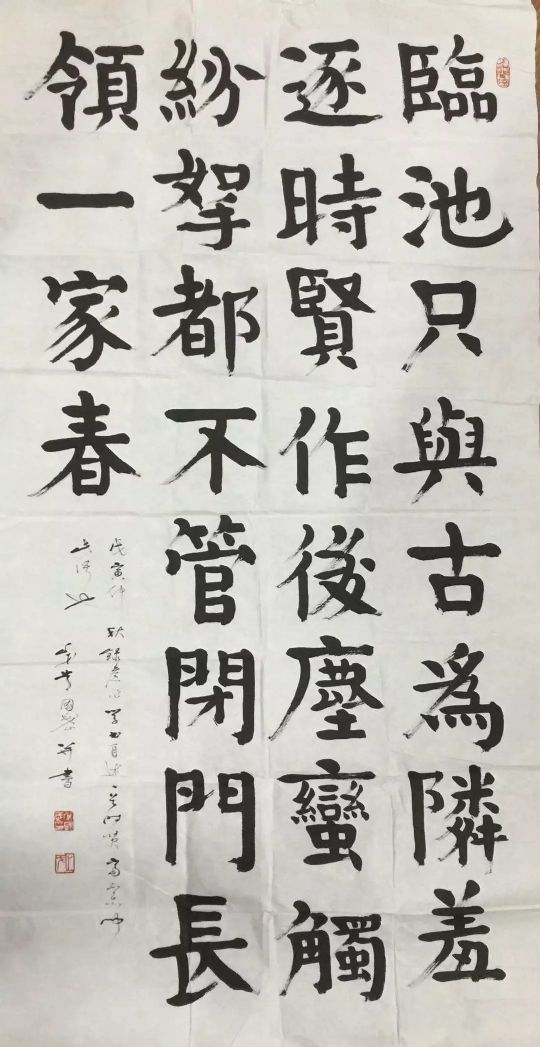 臨池只與古爲隣羞
逐時賢作後塵蠻觸
紛挐都不管閉門長
領一家春
戊寅仲秋錄